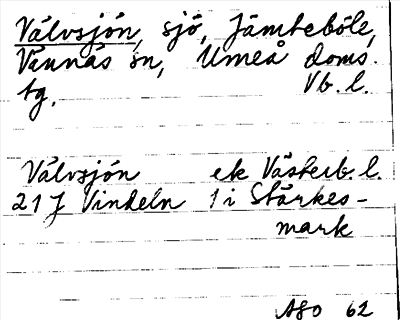 Välvsjön, sjö, Jämteböle,
Vännäs sn, Umeå doms.
tg. Vb. l.
Välvsjön ek Västerb. l.
21 J Vindeln 1 i Stärkes-
mark
ASO 62